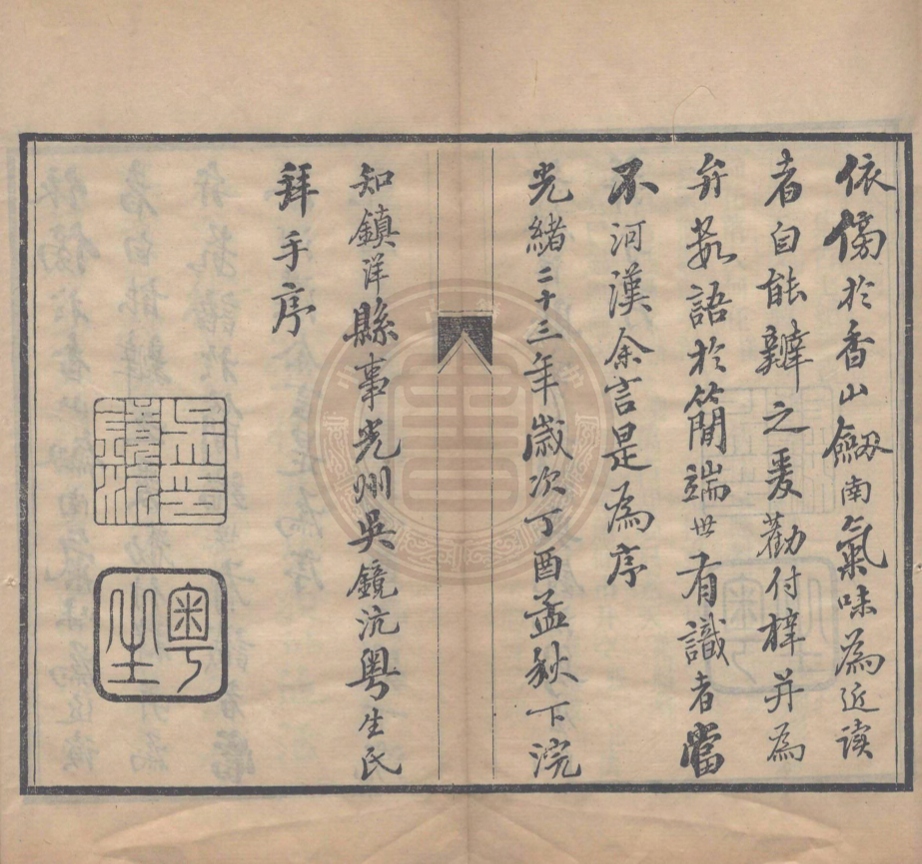 依傍於香山劔南氣味為近讀
者自能辨之爰勸付梓并為
弁数語於簡端世有識者當
不河漢余言是為序
光緒二十三年歲次丁酉孟秋下浣
知鎮洋縣事光州吳鏡沆粤生氏
拜手序
吳印鏡沆
粤生